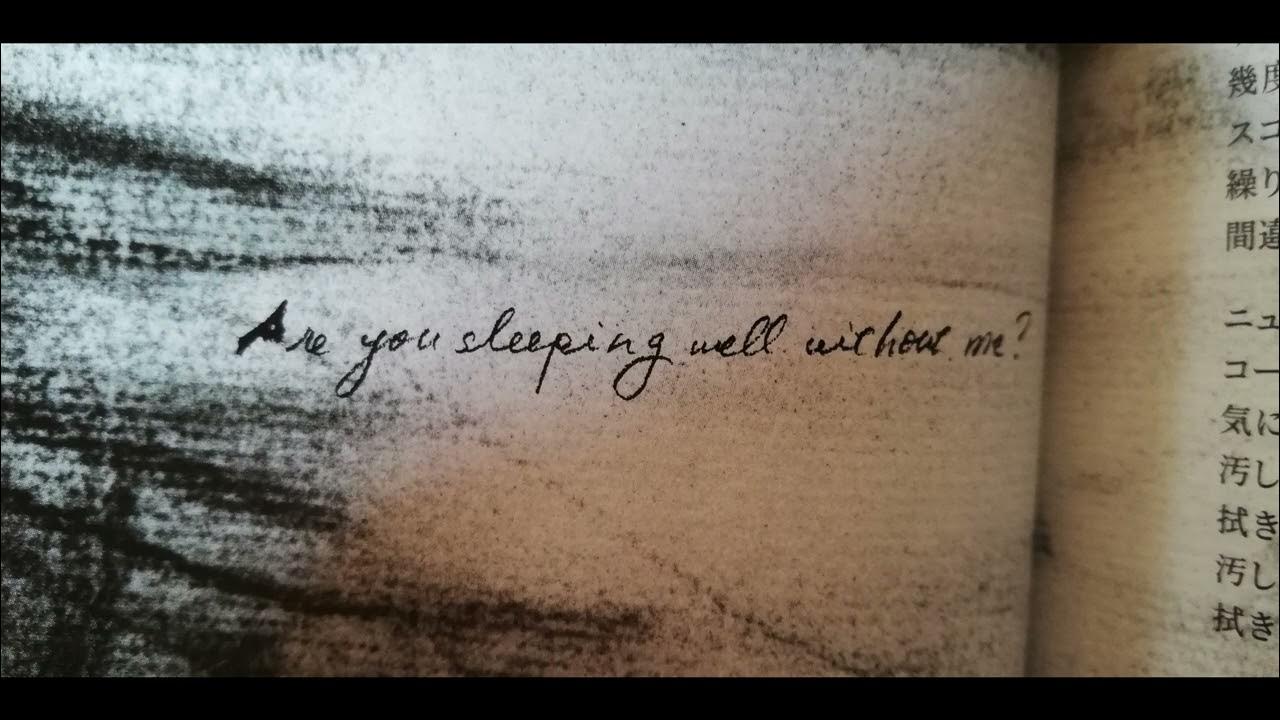 Are you sleeping well without me?
幾度
スコ
繰り
間違
ニュ
コー
気に
汚し
拭き
汚し
拭き